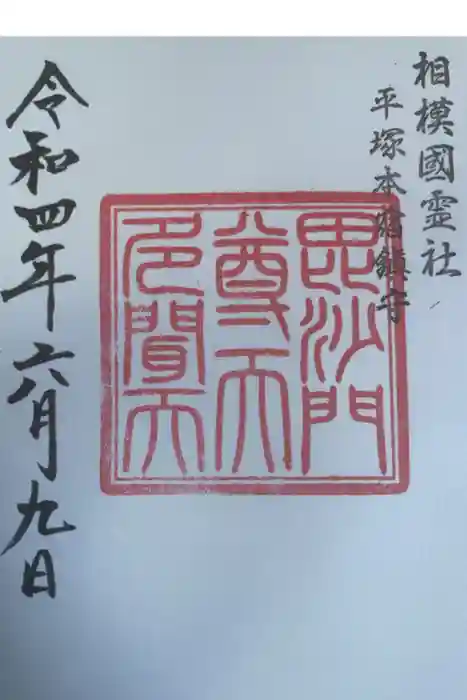 相模國霊社
平塚本宿鎮守
毘沙門
尊天
多聞天
令和四年六月九日